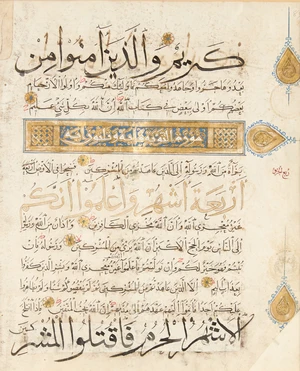 كريم والذين آمنوا من
بعد وهاجروا وجاهدوا معكم فأولئك منكم وأولوا الأرحام
بعضهم أولى ببعض في كتاب الله إن الله بكل شيء عليم
سورة التوبة
براءة من الله ورسوله إلى الذين عاهدتم من المشركين فسيحوا في الأرض
أربعة أشهر واعلموا أنكم
غير معجزي الله وأن الله مخزي الكافرين وأذان من الله ورسوله
إلى الناس يوم الحج الأكبر أن الله بريء من المشركين ورسوله فإن
تبتم فهو خير لكم وإن توليتم فاعلموا أنكم غير معجزي الله وبشر الذين كفروا
بعذاب أليم إلا الذين عاهدتم من المشركين ثم لم ينقصوكم شيئا ولم يظاهروا
عليكم أحدا فأتموا إليهم عهدهم إلى مدتهم إن الله يحب المتقين فإذا انسلخ
الأشهر الحرم فاقتلوا المشركين